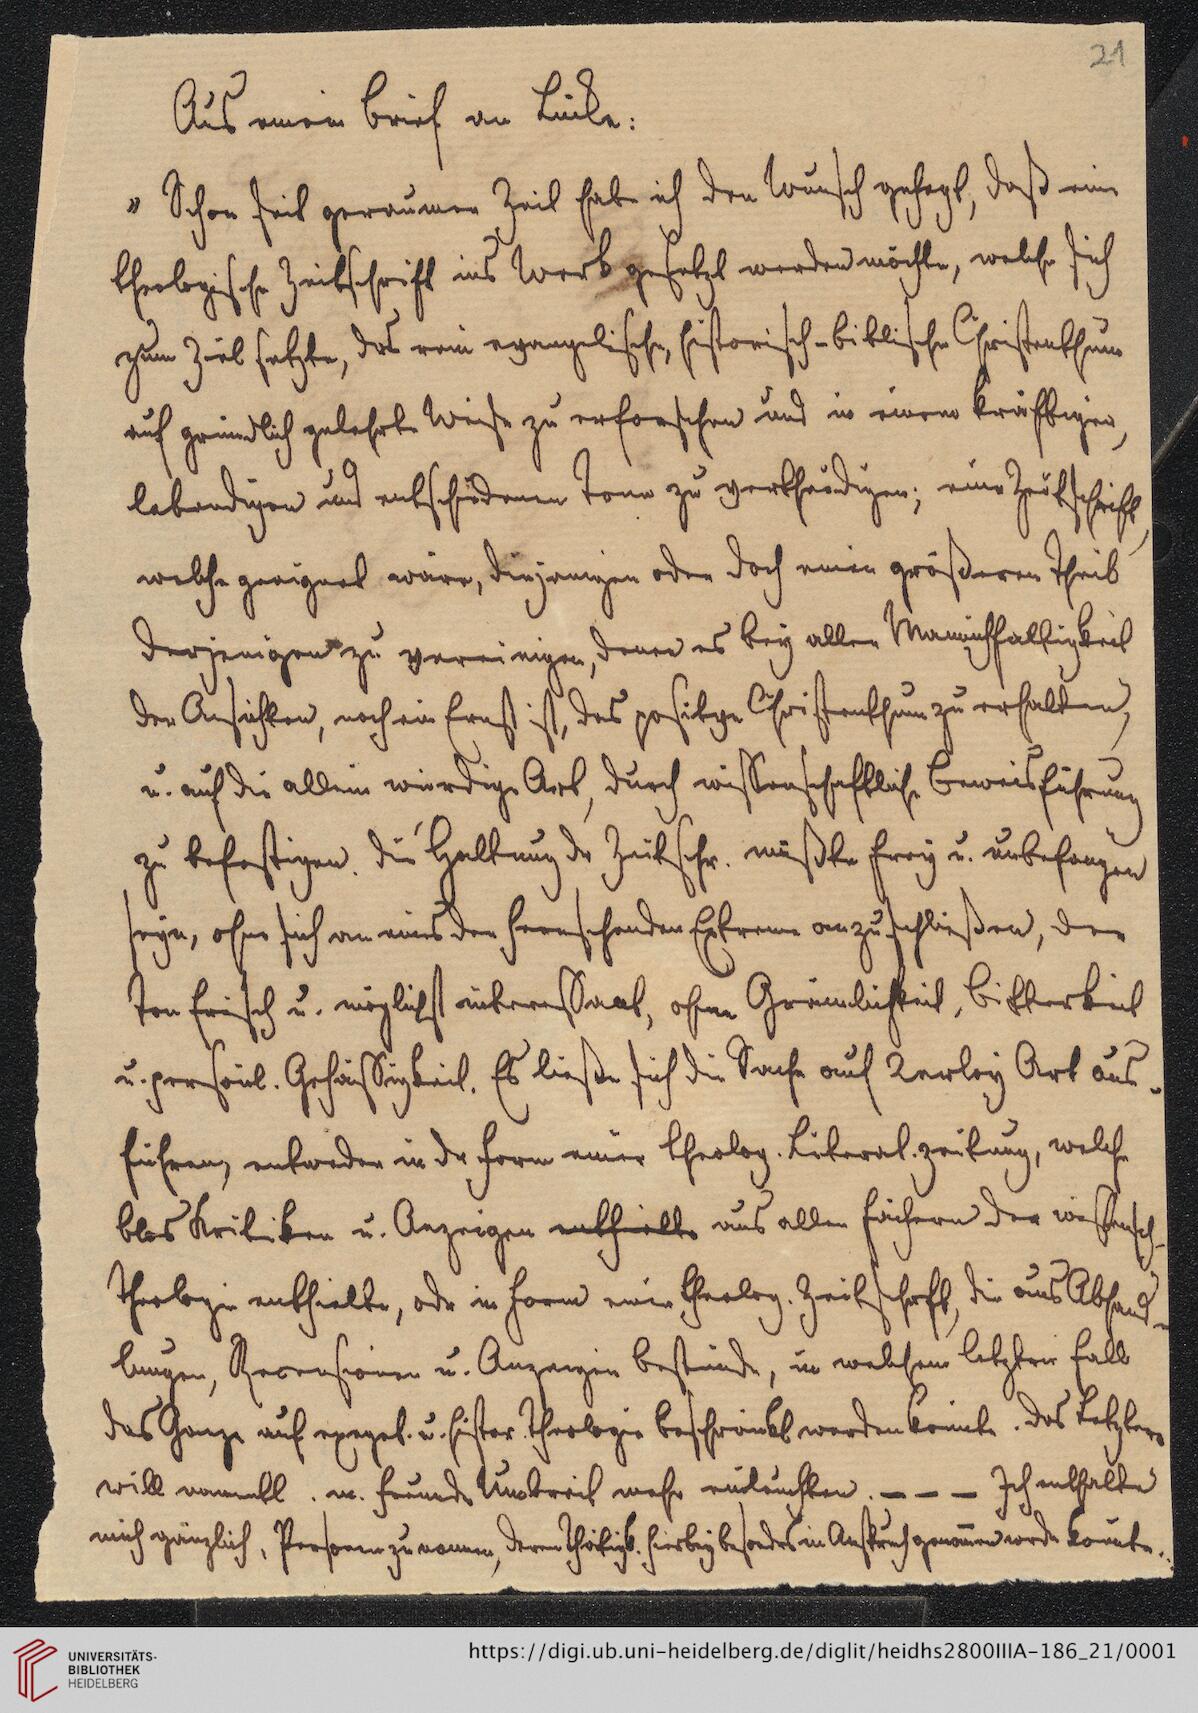 21
Aus einem Brief an Lücke:
" Schon seit geraumer Zeit habe ich den Wunsch gehegt, daß eine
theologische Zeitschrift ins Werk gesetzt werden möchte, welche sich
zum Ziel setzte, das rein evangelische, historisch-biblische Christenthum
auf gründlich gelehrte Weise zu erforschen und in einem kräftigen,
lebendigen und entschiedenen Tone zu vertheidigen; eine Zeitschrift,
welche geeignet wäre, diejenigen oder doch einen größeren Theil
derjenigen zu vereinigen, denen es bey aller Mannichfaltigkeit
der Ansichten, noch ein Ernst ist, das positive Christenthum zu erhalten,
u. auf die allein würdige Art, durch wissenschaftliche Beweisführung
zu befestigen. Die Haltung der Zeitschr. müßte frey u. unbefangen
seyn, ohne sich an eines der herrschenden Extreme anzuschließen, der
Ton frisch u. möglichst interessant, ohne Grämlichkeit, Bitterkeit
u. persönl. Gehässigkeit. Es ließe sich die Sache auf 2erley Art aus-
führen, entweder in der Form einer theolog. Literat.zeitung, welche
blos Kritiken u. Anzeigen enthielte aus allen Fächern der wissensch-
Theologie enthielte, oder in Form einer theolog. Zeitschrft, die aus Abhand-
lungen, Recensionen u. Anzeigen bestünde, in welchem letzten Fall
das Ganze auf exeget. u. histor. Theologie beschränkt werden könnte. Das Letztere
will namentl. m. Freunde Umbreit mehr einleuchten. – – – Ich enthalte
mich gänzlich, Personen zu nennen, deren Thätigk. hierbey besonders in Anspruch genommen werden könnte.
UNIVERSITÄTS-
BIBLIOTHEK
HEIDELBERG
https://digi.ub.uni-heidelberg.de/diglit/heidhs2800IIIA-186_21/0001